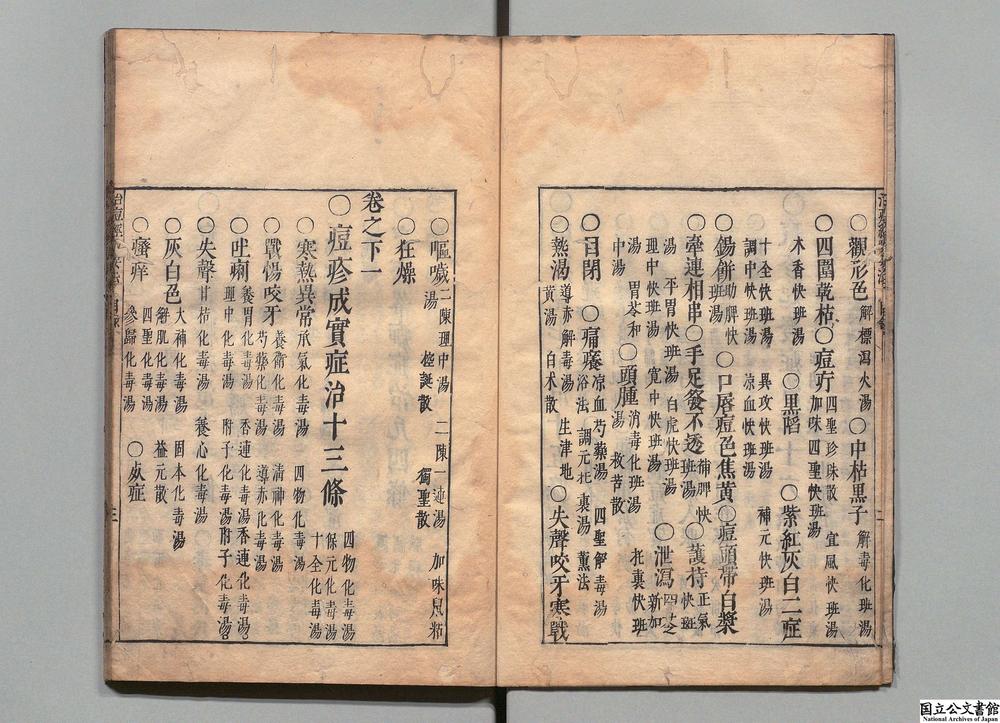 ○觀形色 解標瀉火湯 ○中枯黑子 解毒化班湯
○四圍乾枯○痘疔 四聖珍珠散 宜風快班湯 加味四聖快班湯
木香快班湯 ○黑陷 ○紫紅灰白二症
十全快班湯 異攻快班湯 補元快班湯
調中快班湯 凉血快班湯
○錫餅 助脾快班湯 ○口唇痘色焦黃○痘頭帶白漿
○牽連相串○手足發不透 補脾快班湯 ○護持 正氣快班
湯 平胃快班湯 白虎快班湯 ○泄瀉 四苓 新加
理中快班湯 寬中快班湯 托裏快班
湯 胃苓和中湯 ○頭腫 消毒化班湯 救苦散
○目閉 ○痛癢 凉血芍藥湯 四聖解毒湯 浴法 調元托裏湯 薰法
○熱渴 導赤解毒湯 黃湯 白朮散 生津地 ○失聲咬牙寒戰
○嘔噦 二陳理中湯 二陳一連湯 加味鼠粘
湯 控涎散 獨聖散
○狂燥
卷之下一
○痘疹成實症治十三條
四物化毒湯
○寒熱異常 承氣化毒湯 四物化毒湯 保元化毒湯 十全化毒湯
○戰惕咬牙 養衛化毒湯 清神化毒湯 芍藥化毒湯 導赤化毒湯
○吐痢 養胃化毒湯 香連化毒湯 香連化毒湯 理中化毒湯 附子化毒湯 附子化毒湯
○失聲 甘桔化毒湯 養心化毒湯
○灰白色 大補化毒湯 固本化毒湯 解肌化毒湯 益元散
○癢痒 四聖化毒湯 參歸化毒湯 ○灰症
目錄
三
国立公文書館
National Archives of Japan